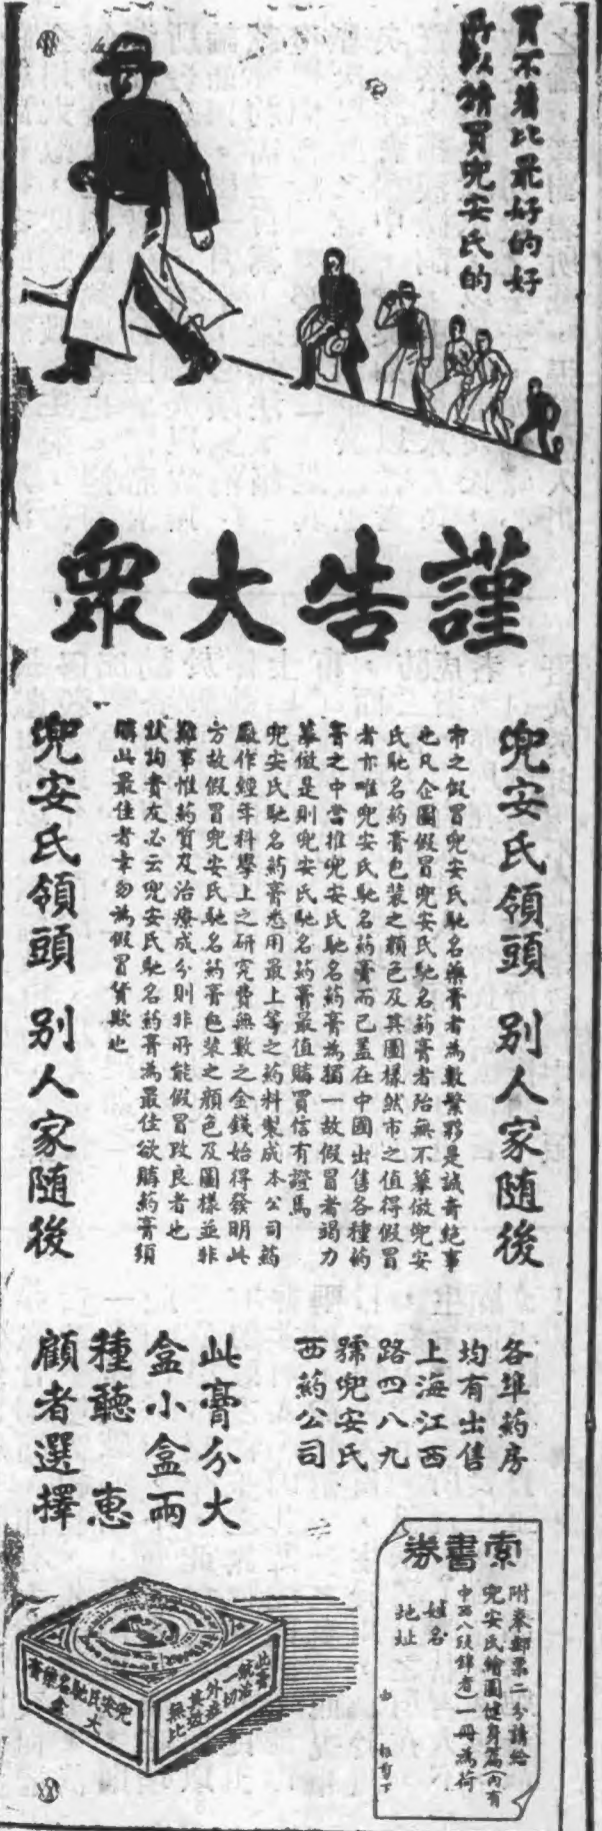 買不着比最好的好
所以請買兜安氏的
謹告大衆
兜安氏領頭 別人家随後
市之假冒兜安氏馳名藥膏者為數繁夥是誠奇絕事
也凡企圖假冒兜安氏馳名葯膏者殆無不摹倣兜安
氏馳名葯膏包裝之顏色及其圖樣然市之值得假冒
者亦唯兜安氏馳名葯膏而已蓋在中國出售各種葯
膏之中當推兜安氏馳名葯膏為獨一故假冒者竭力
摹倣是則兜安氏馳名葯膏最值購買信有證焉
兜安氏馳名葯膏悉用最上等之葯料製成本公司葯
廠作經年科學上之研究費無數之金錢始得發明此
方故假冒兜安氏馳名葯膏包裝之顏色及圖樣並非
難事惟葯質及治療成分則非所能假冒改良者也
狀詢貴友必云兜安氏馳名葯膏為最佳欲購葯膏須
購此最佳者幸勿為假冒貨欺也
兜安氏領頭 別人家随後
各埠葯房
均有出售
上海江西
路四八九
號兜安氏
西葯公司
此膏分大
盒小盒兩
種聽 惠
顧者選擇
索書券
附奉郵票二分請給
兜安氏繪圖健身篇(內有
中西八段錦者)一冊為荷
姓名
地址
由
兜安氏馳名藥膏
大盒
此膏統治一切外症其效無比